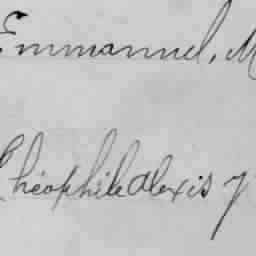 Emmanuel, M
Théophile Alexis J